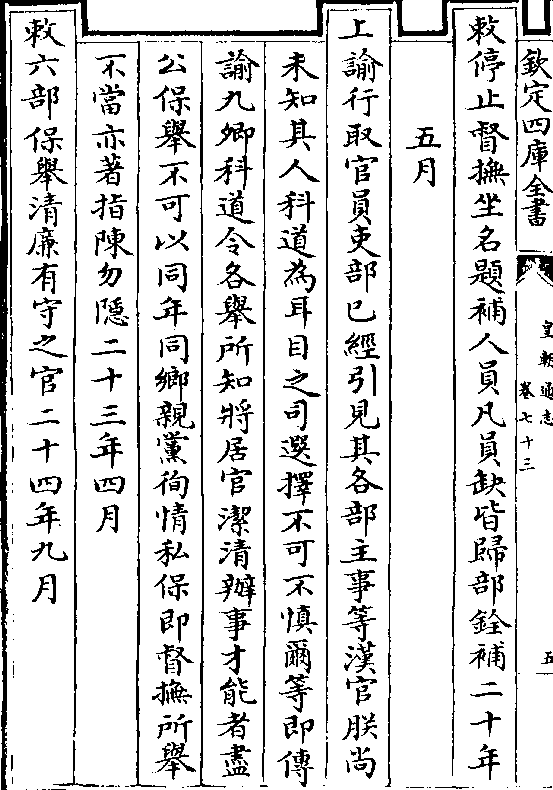 欽定四庫全書
皇朝通志
卷七十三
五
敕停止督撫坐名題補人員凡員缺皆歸部銓補二十年
五月
上諭行取官員吏部已經引見其各部主事等漢官朕尚
未知其人科道為耳目之司選擇不可不慎爾等即傳
諭九卿科道令各舉所知將居官潔清辦事才能者盡
公保舉不可以同年同鄉親黨徇情私保即督撫所舉
不當亦著指陳勿隱二十三年四月
敕六部保舉清廉有守之官二十四年九月